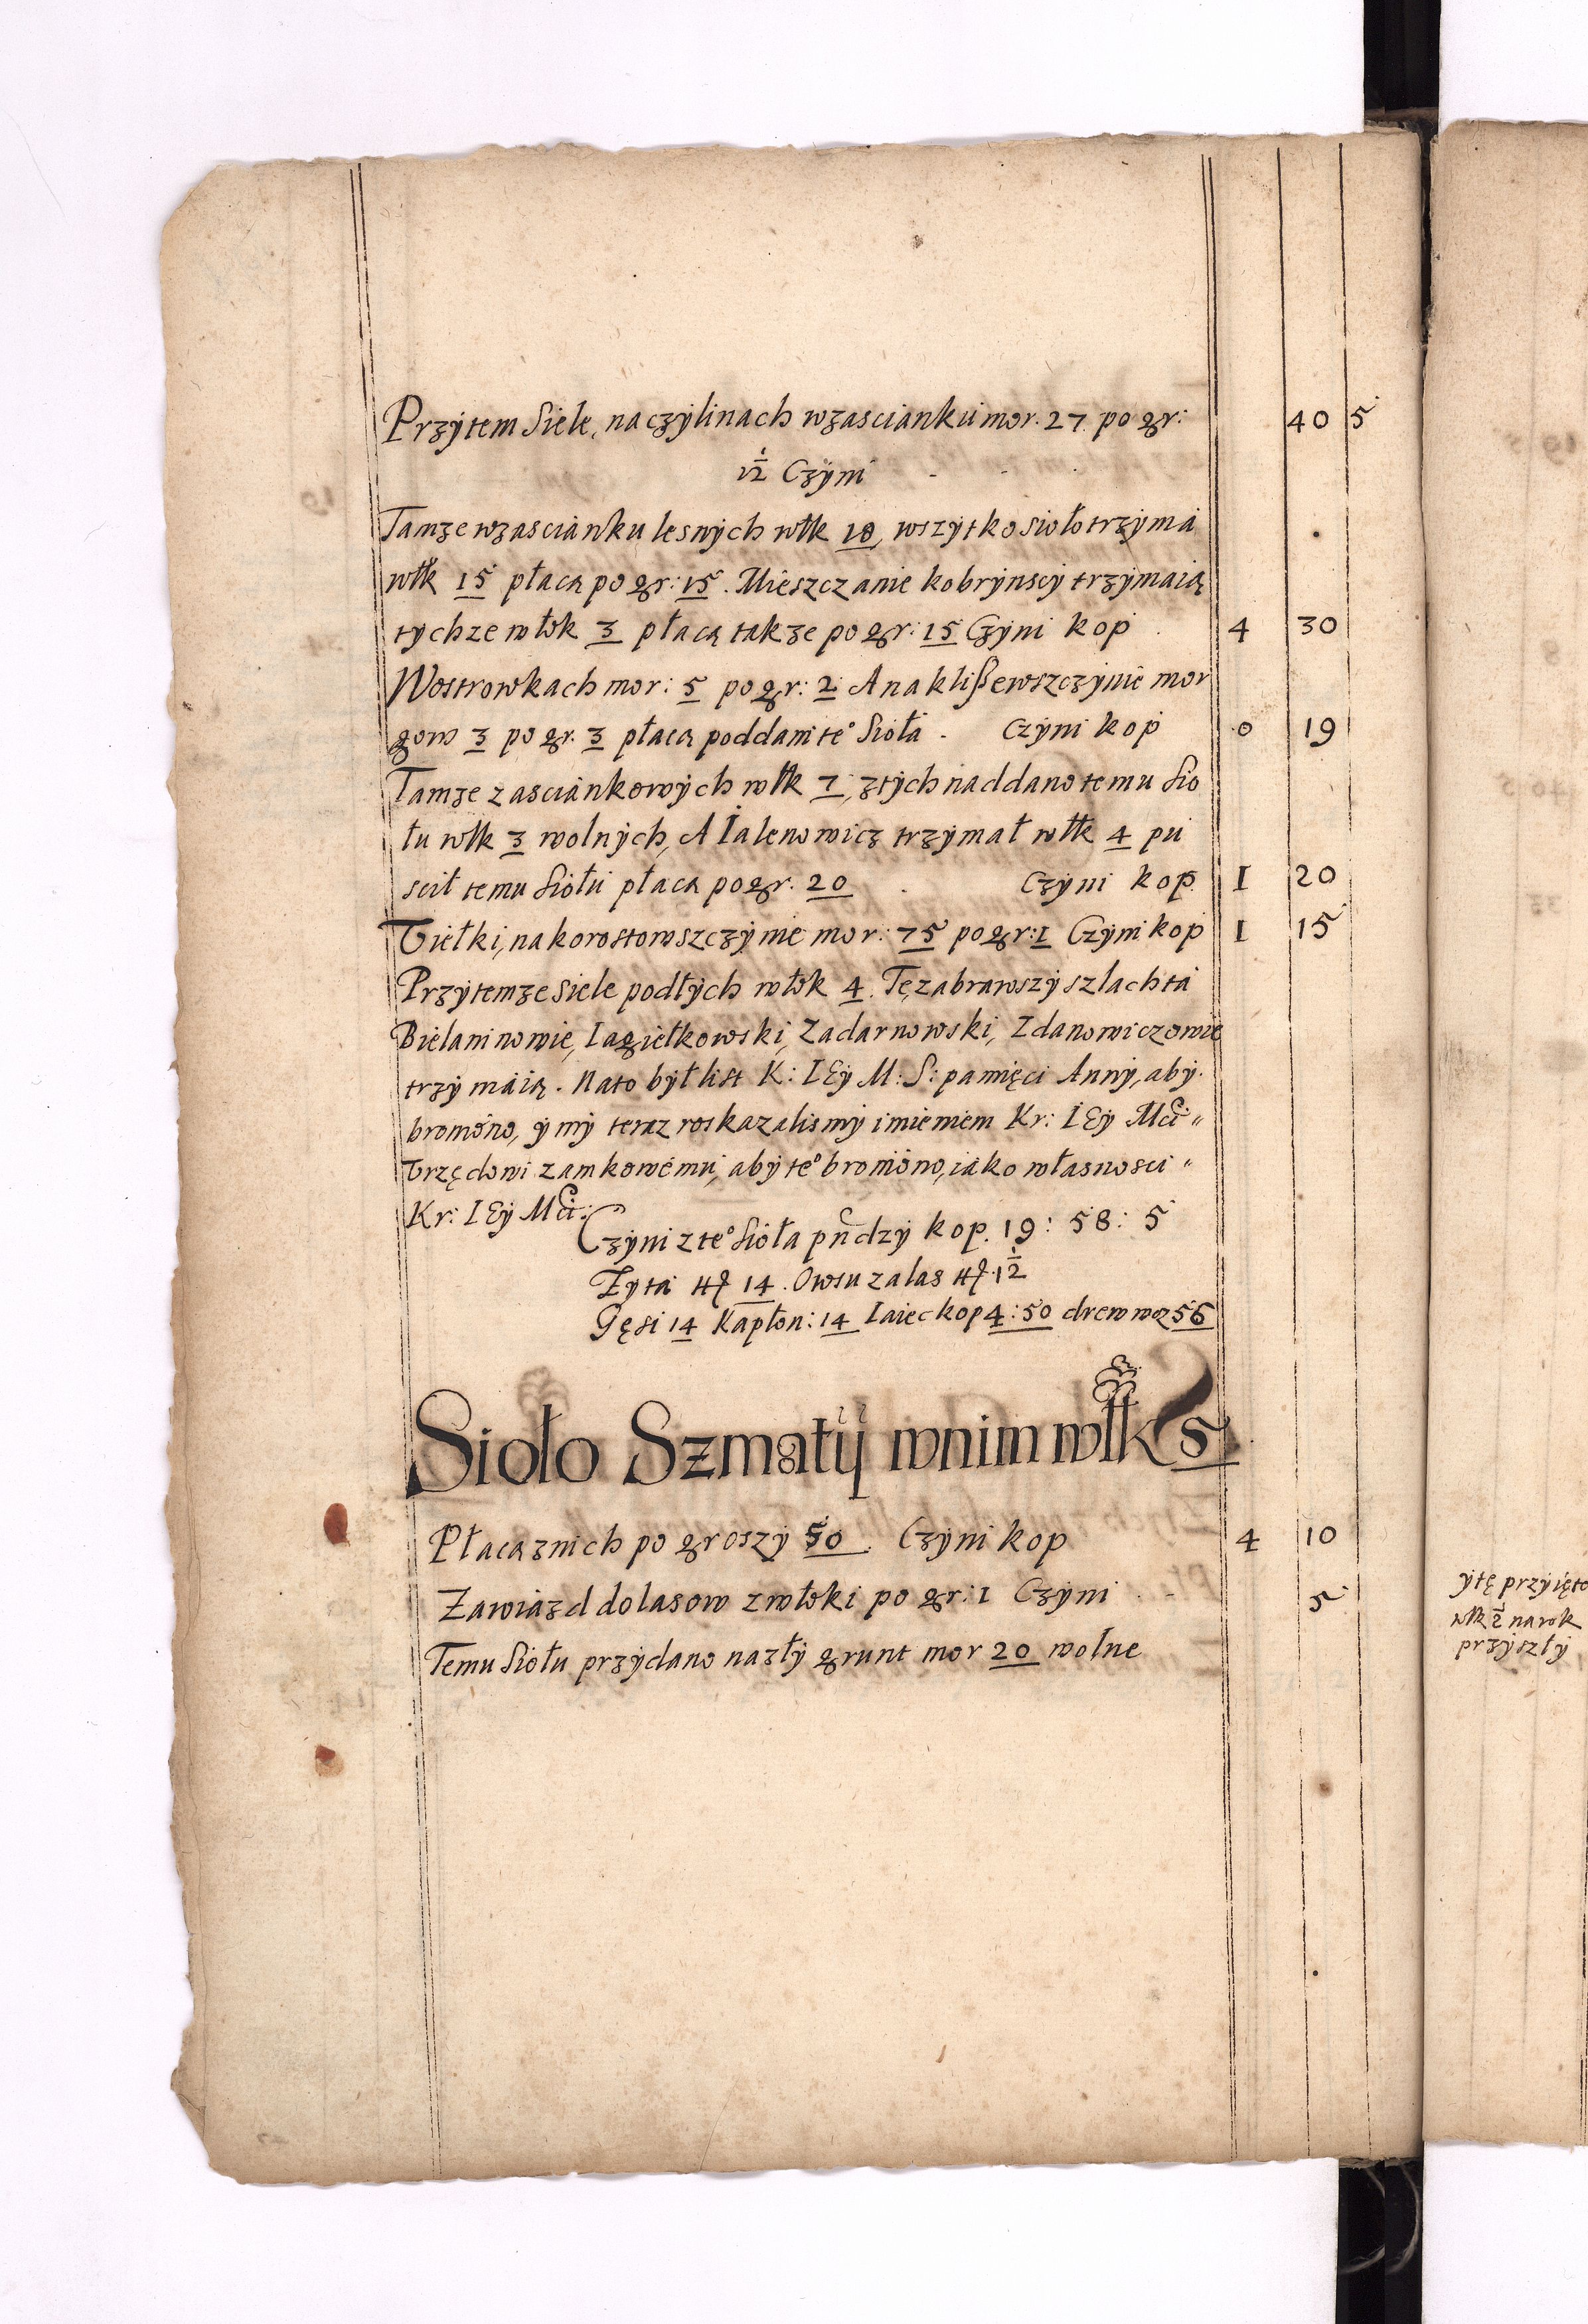 Przytem Siele, na czylinach w zasciankú mor. 27. po gr: 40 5
1 1/2 Czÿni
Tamze w zascianku lesnych włk 18, wszytko sioło trzÿma
włk 15 płacą po gr: 15. Mieszczanie kobrÿnscÿ trzÿmaią
tych ze włok 3 płacą takze po gr: 15 Czÿni kop 4 30
Wostrowkach mor: 5 po gr: 2 A na klißewszczÿnie mor
gow 3 po gr. 3 płacą poddani te° Sioła. Czÿni kop 0 19
Tamze zasciankowÿch włk 7, z tÿch naddano temu Sio
łu włk 3 wolnÿch, A Ialenowicz trzÿmał włk 4 pu
scił temu Siołu płacą po gr. 20 Czÿni kop 1 20
Vielki, na korostowszczÿnie mor: 75 po gr: 1 Czÿni kop 1 15
Przÿtemze Siele podłÿch włok 4. Te zabrawszÿ szlachta
Bielaninowie, Iagiełkowski, Zadarnowski, Zdanowiczowie
trzÿmaią. Na to był list K: I Eÿ M: S: pamięci Annÿ, abÿ
bromono, ÿ mÿ teraz roskazalismÿ imieniem Kr: I Eÿ Mci
Vrzędowi zamkowemu, abÿ te° broniono, iako własnosci
Kr: I Eÿ Mci:
Czÿni z te° Sioła pndzÿ kop. 19: 58: 5
Zÿta 14. Owsu za las 1 1/2
Gęsi 14 Kapłon: 14 Iaiec kop 4: 50 drew woz 56
Sioło Szmatÿ w nim włk 5
Płacą z nich po groszÿ 50. Czÿni kop 4 10
Zawiazd do lasow z włoki po gr: 1 Czÿni 5
Temu Siołu przÿdano na złÿ grunt mor 20 wolne
ÿ tę przÿięto
włk 1/2 na rok
przÿszłÿ